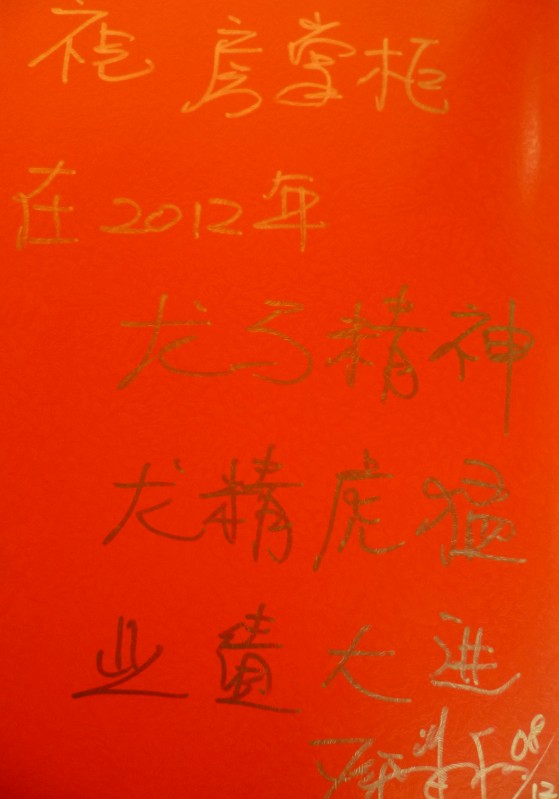 祝 房掌柜
在2012年
龙马精神
龙精虎猛
业绩大进
08/12